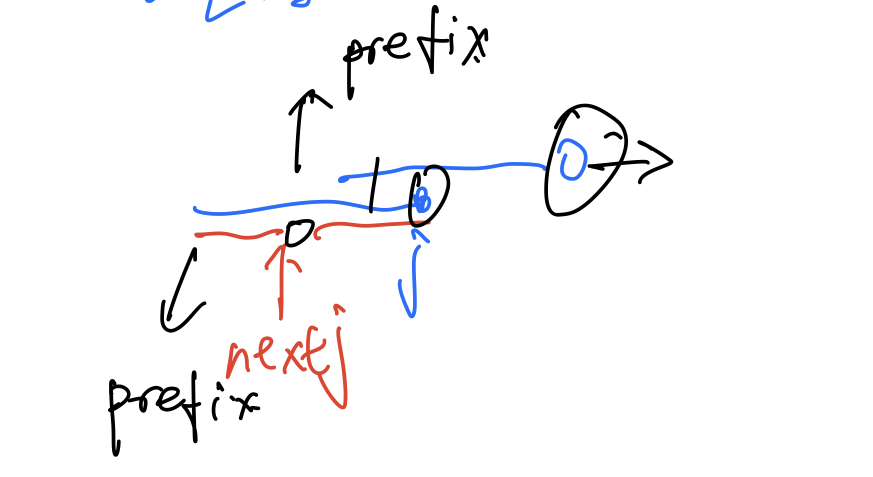 prefix
nextj
prefix